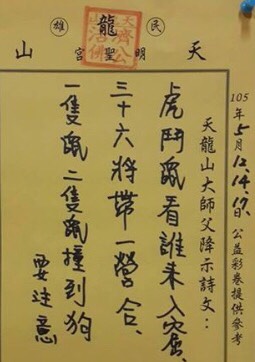 民雄
天龍山
明聖宮
天濟公
山活佛
105年5月12.14.17.日公益彩卷提供參考
天龍山大師父降示詩文：
虎鬥鼠看誰來入窟、
三十六將帶一營合、
一隻鼠二隻鼠撞到狗
要注意